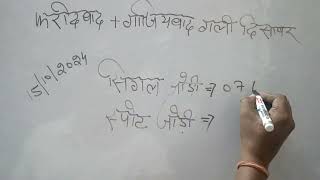 फरीदवाद + गाजियवाद गली दिसावर
5/10/2024
सिंगल जोड़ी ⇒ 07
स्पोट जोड़ी ⇒